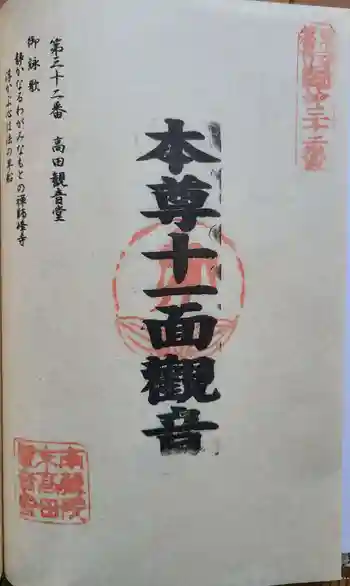 本尊十一面觀音
第三十二番 高田観音堂
御詠歌
静かなるわがみなもとの禅師峰寺
浮かぶ心は法の早船